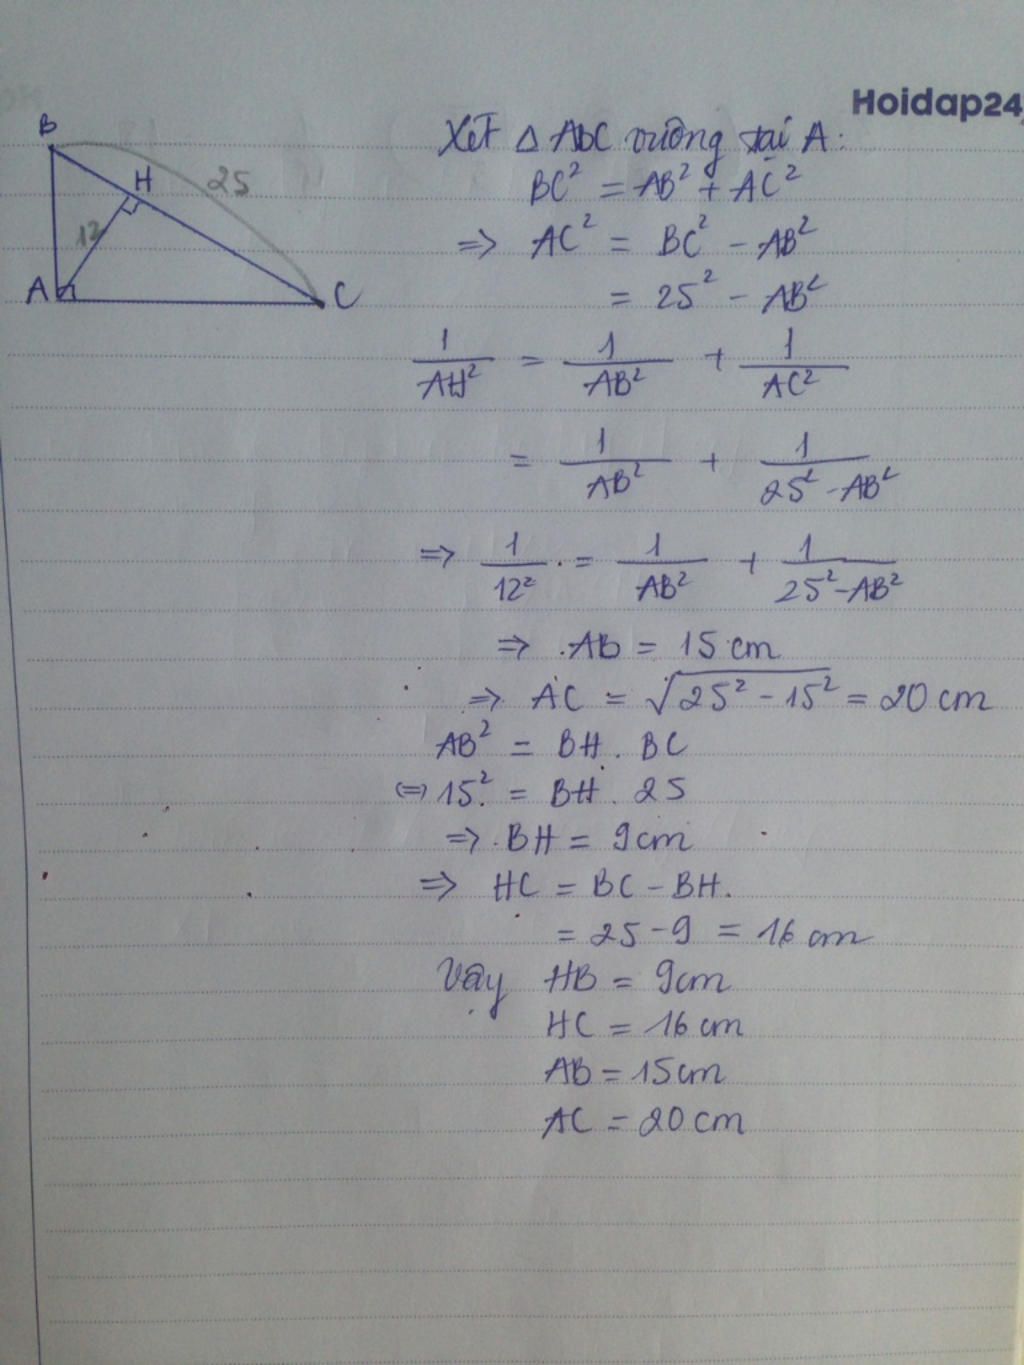 Hoidap24
B
H
25
12
A
C
Xét Δ ABC vuông tại A:
BC² = AB² + AC²
=> AC² = BC² - AB²
= 25² - AB²
1/AH² = 1/AB² + 1/AC²
= 1/AB² + 1/25² - AB²
=> 1/12² = 1/AB² + 1/25² - AB²
=> AB = 15 cm
=> AC = √25² - 15² = 20 cm
AB² = BH . BC
(=) 15² = BH . 25
=> BH = 9cm
=> HC = BC - BH.
= 25 - 9 = 16 cm
Vậy HB = 9cm
HC = 16 cm
AB = 15cm
AC = 20 cm